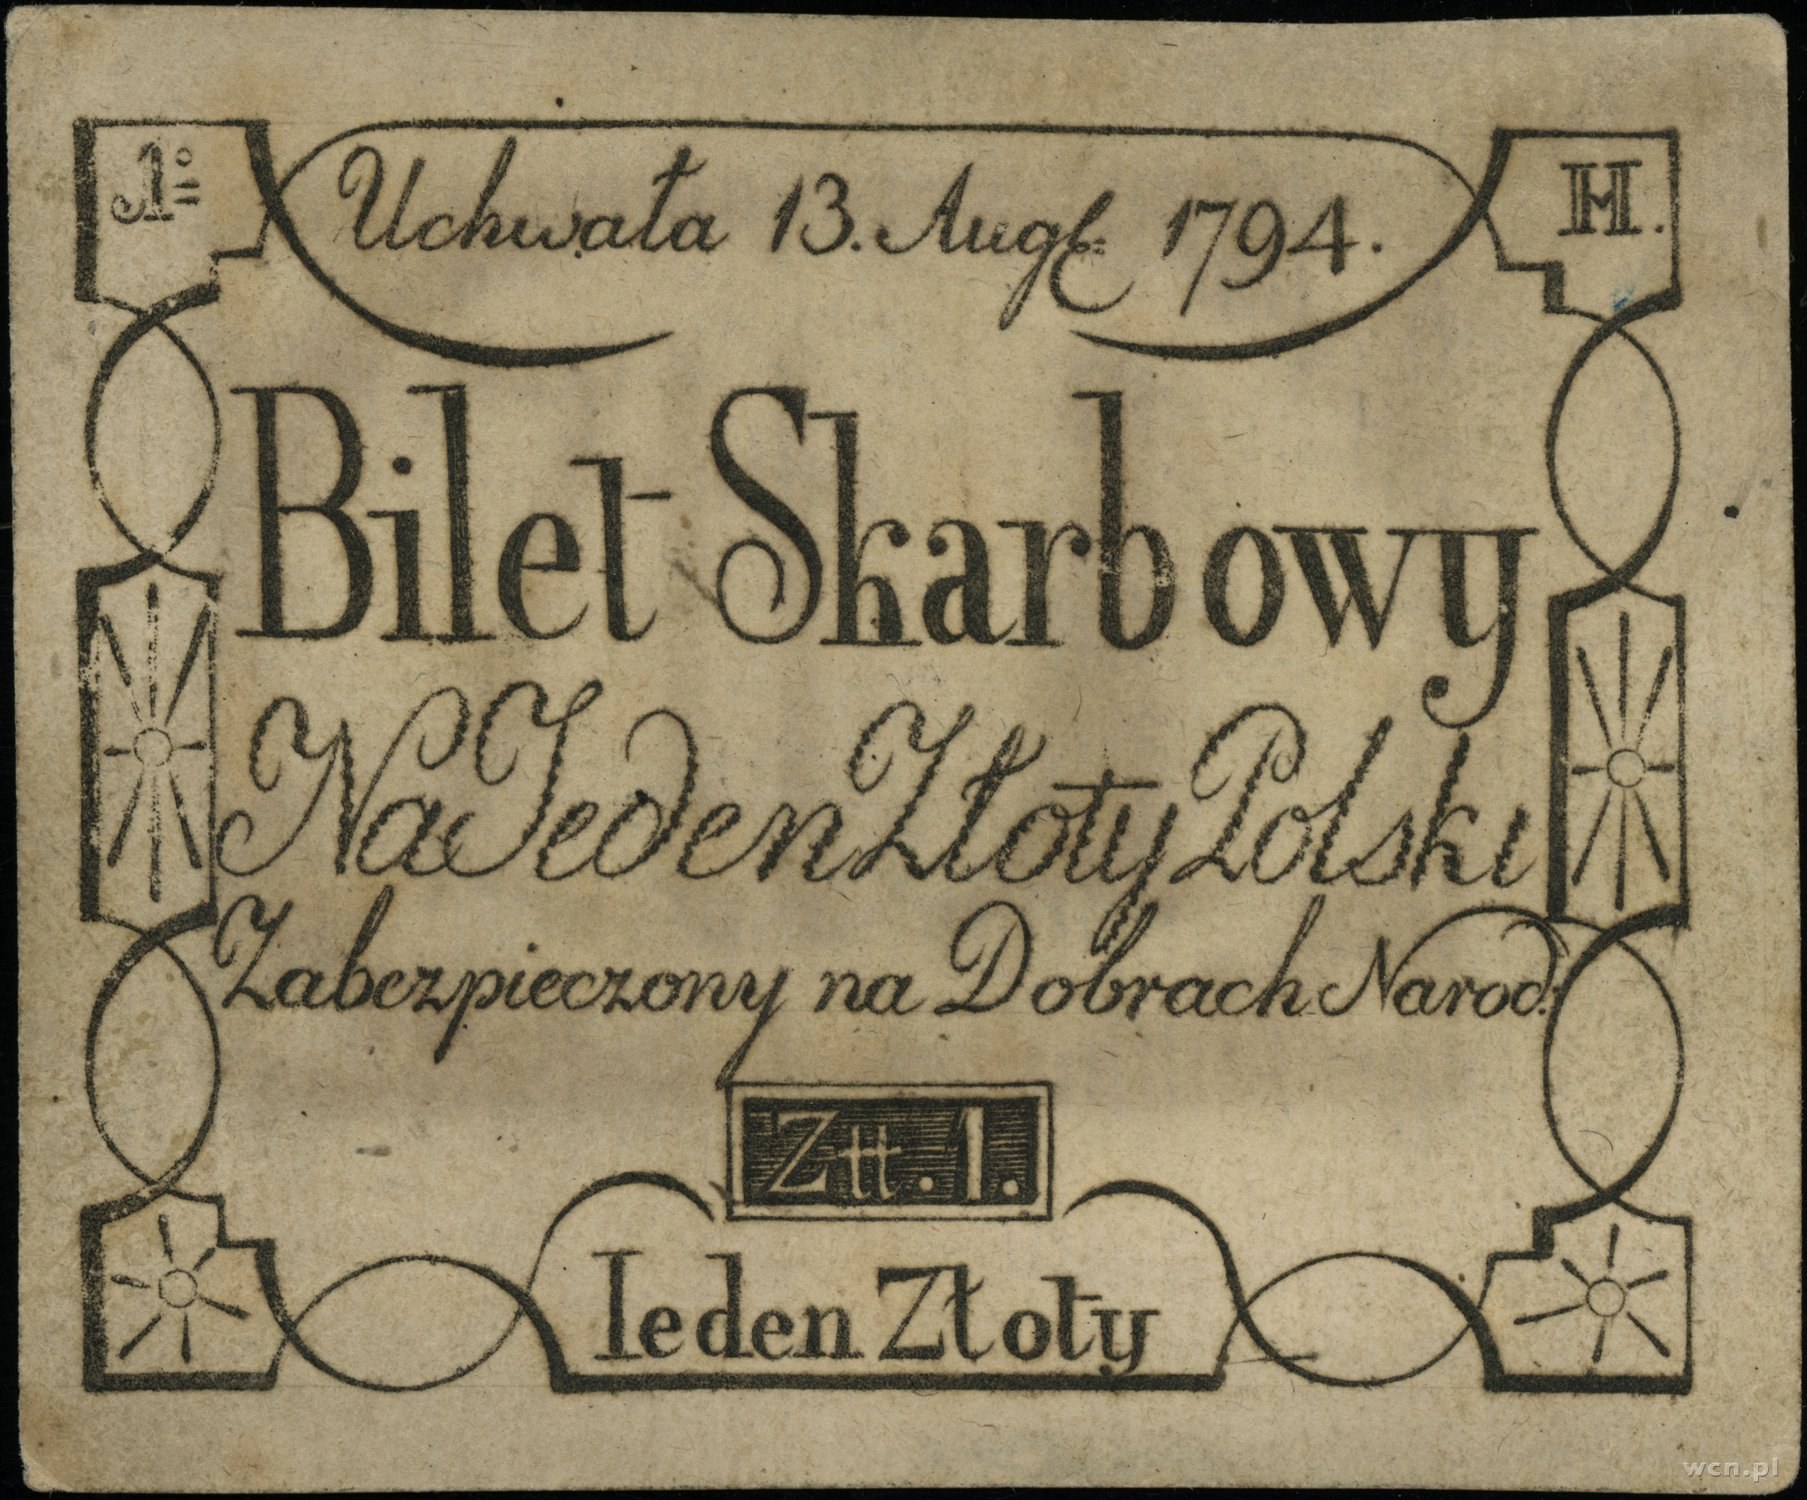 1o=
Uchwała 13. Augt: 1794.
H.
Bilet Skarbowy
Na Ieden Złoty Polski
Zabezpieczony na Dobrach Narod:
Złł. 1.
Ieden Złoty
wcn.pl